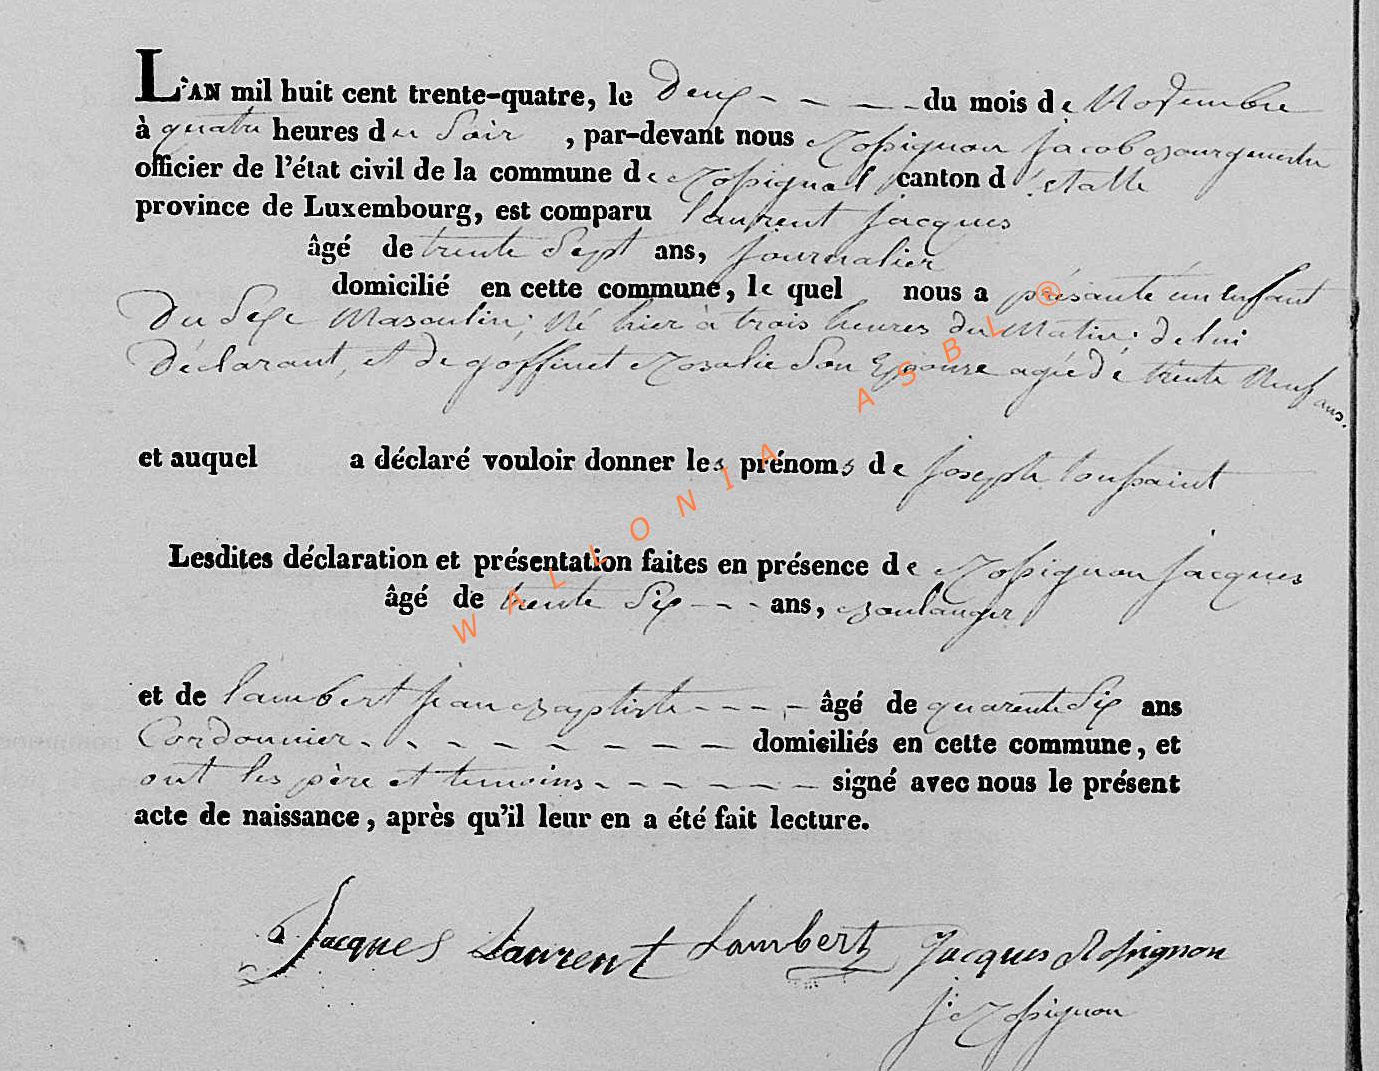 L'AN mil huit cent trente-quatre, le Deux - - - - du mois de Novembre
à quatre heures du Soir , par-devant nous Rossignon Jacob Bourgmestre
officier de l'état civil de la commune de Rossignol canton d'Etalle
province de Luxembourg, est comparu laurent Jacques
âgé de trente Sept ans, Journalier
domicilié en cette commune, le quel nous a présanté un enfant
Du Sexe Masculin; Né hier à trois heures du Matin: de lui
Déclarant, et de goffinet Rosalie Son Epouse agée dé trente Neuf ans.
et auquel a déclaré vouloir donner les prénoms de Joseph toussaint
Lesdites déclaration et présentation faites en présence de Rossignon Jacques
âgé de trente Six - - - ans, Boulanger
et de lambert Jean Baptiste - - - - âgé de quarente Six ans
Cordonnier - - - - - - - - domiciliés en cette commune, et
ont les père et temoins - - - - - - signé avec nous le présent
acte de naissance, après qu'il leur en a été fait lecture.
Jacques Laurent Lambert Jacques Rossignon
J: Rossignon
WALLONIA ASBL ®